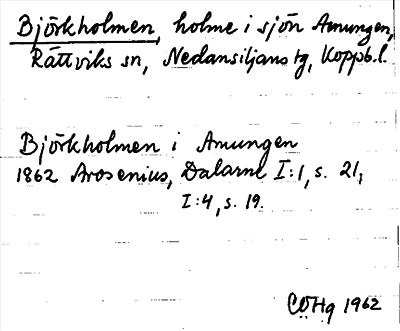 Björkholmen, holme i sjön Amungen,
Rättviks sn, Nedansiljans tg, Koppb.l.
Björkholmen i Amungen
1862 Arosenius, Dalarne I:1, s. 21,
I:4, s. 19.
CÖHg 1962